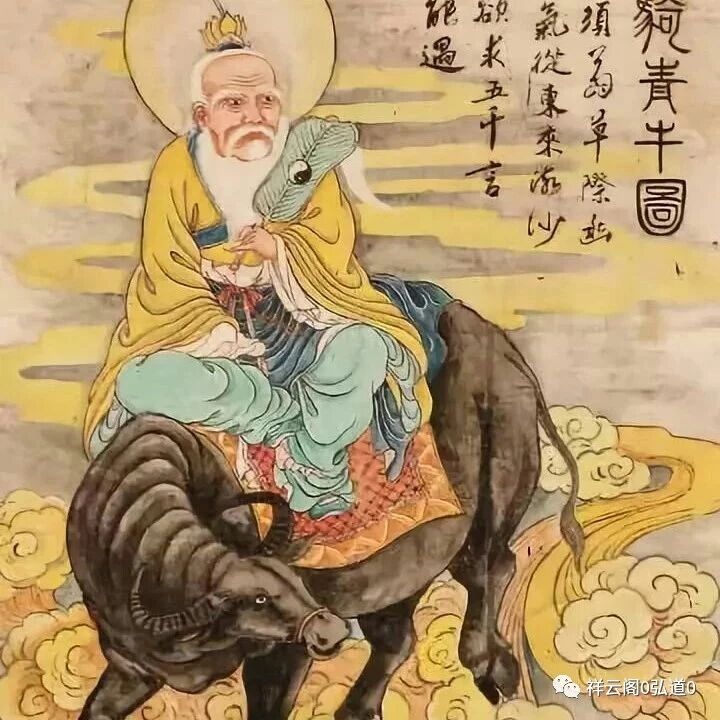 騎青牛圖
須草際
氣從東來流沙
欲求五千言
能遇
祥云阁0弘道0